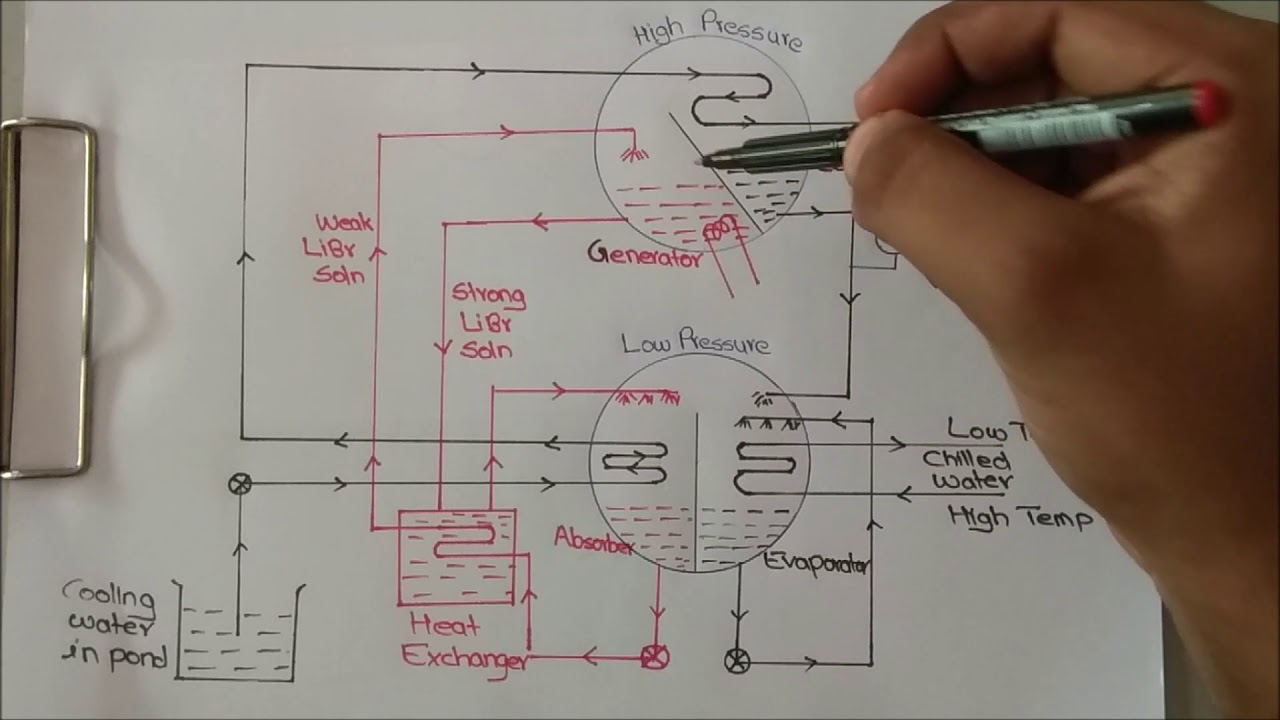 High Pressure
Weak
LiBr
Soln
Generator
Strong
LiBr
Soln
Low Pressure
Low T
Chilled
water
High Temp
Absorber
Evaporator
Cooling
water
in pond
Heat
Exchanger